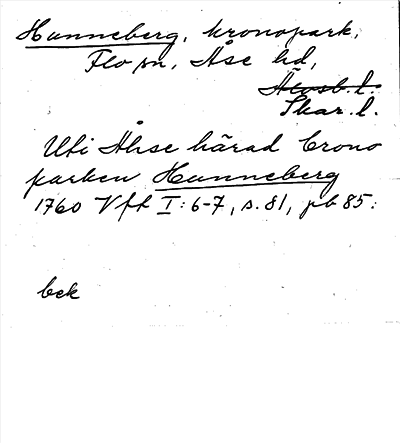 Hunneberg, kronopark,
Flo sn, Åse hd,
Älvsb. l.
Skar. l.
Uti Åhse härad Crono
parken Hunneberg
1760 Vfh I: 6-7, s. 81, pb 85:
bek